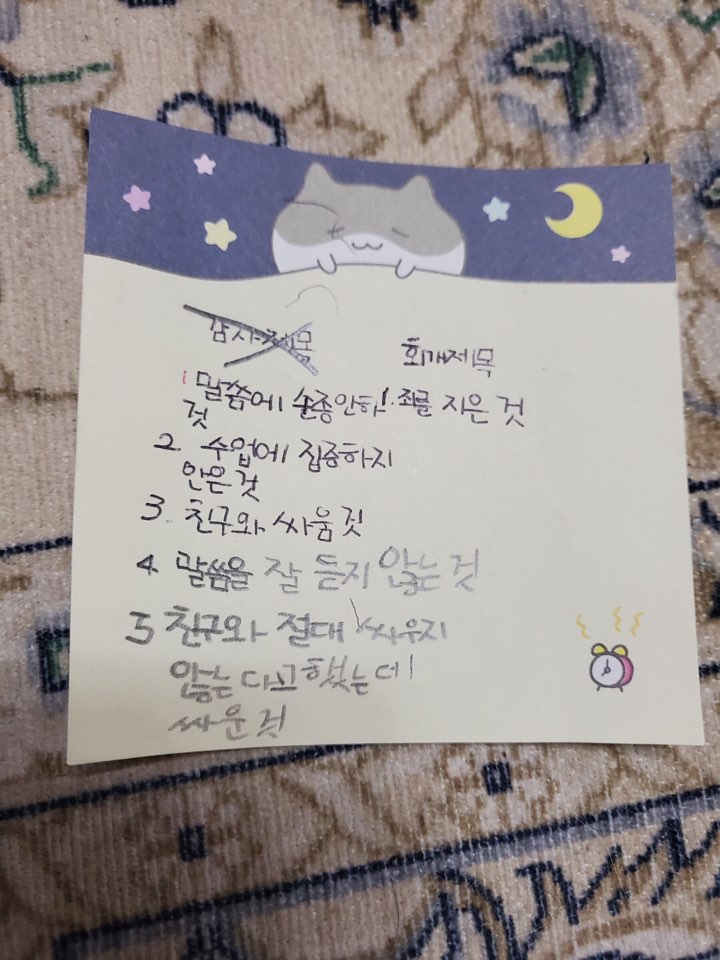 감사제목
회개제목
1 말씀에 순종안하고 죄를 지은 것
것
2 수업에 집중하지
안은 것
3 친구와 싸움 것
4 말씀을 잘 듣지 않는 것
5 친구와 절대 싸우지
않는다고 했는데
싸운 것